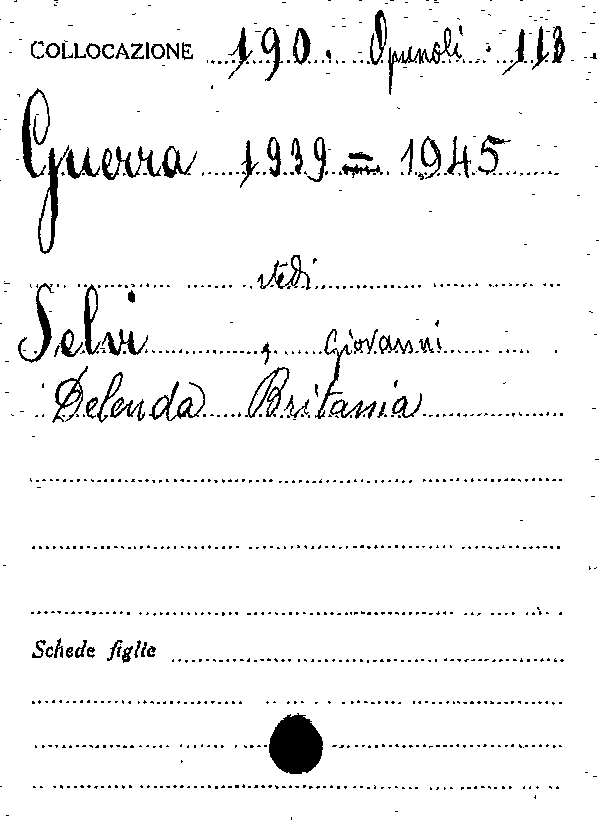 COLLOCAZIONE 190. Opuscoli. 113
Guerra 1939 = 1945
vedi
Selvi, Giovanni
Delenda Britania
Schede figlie